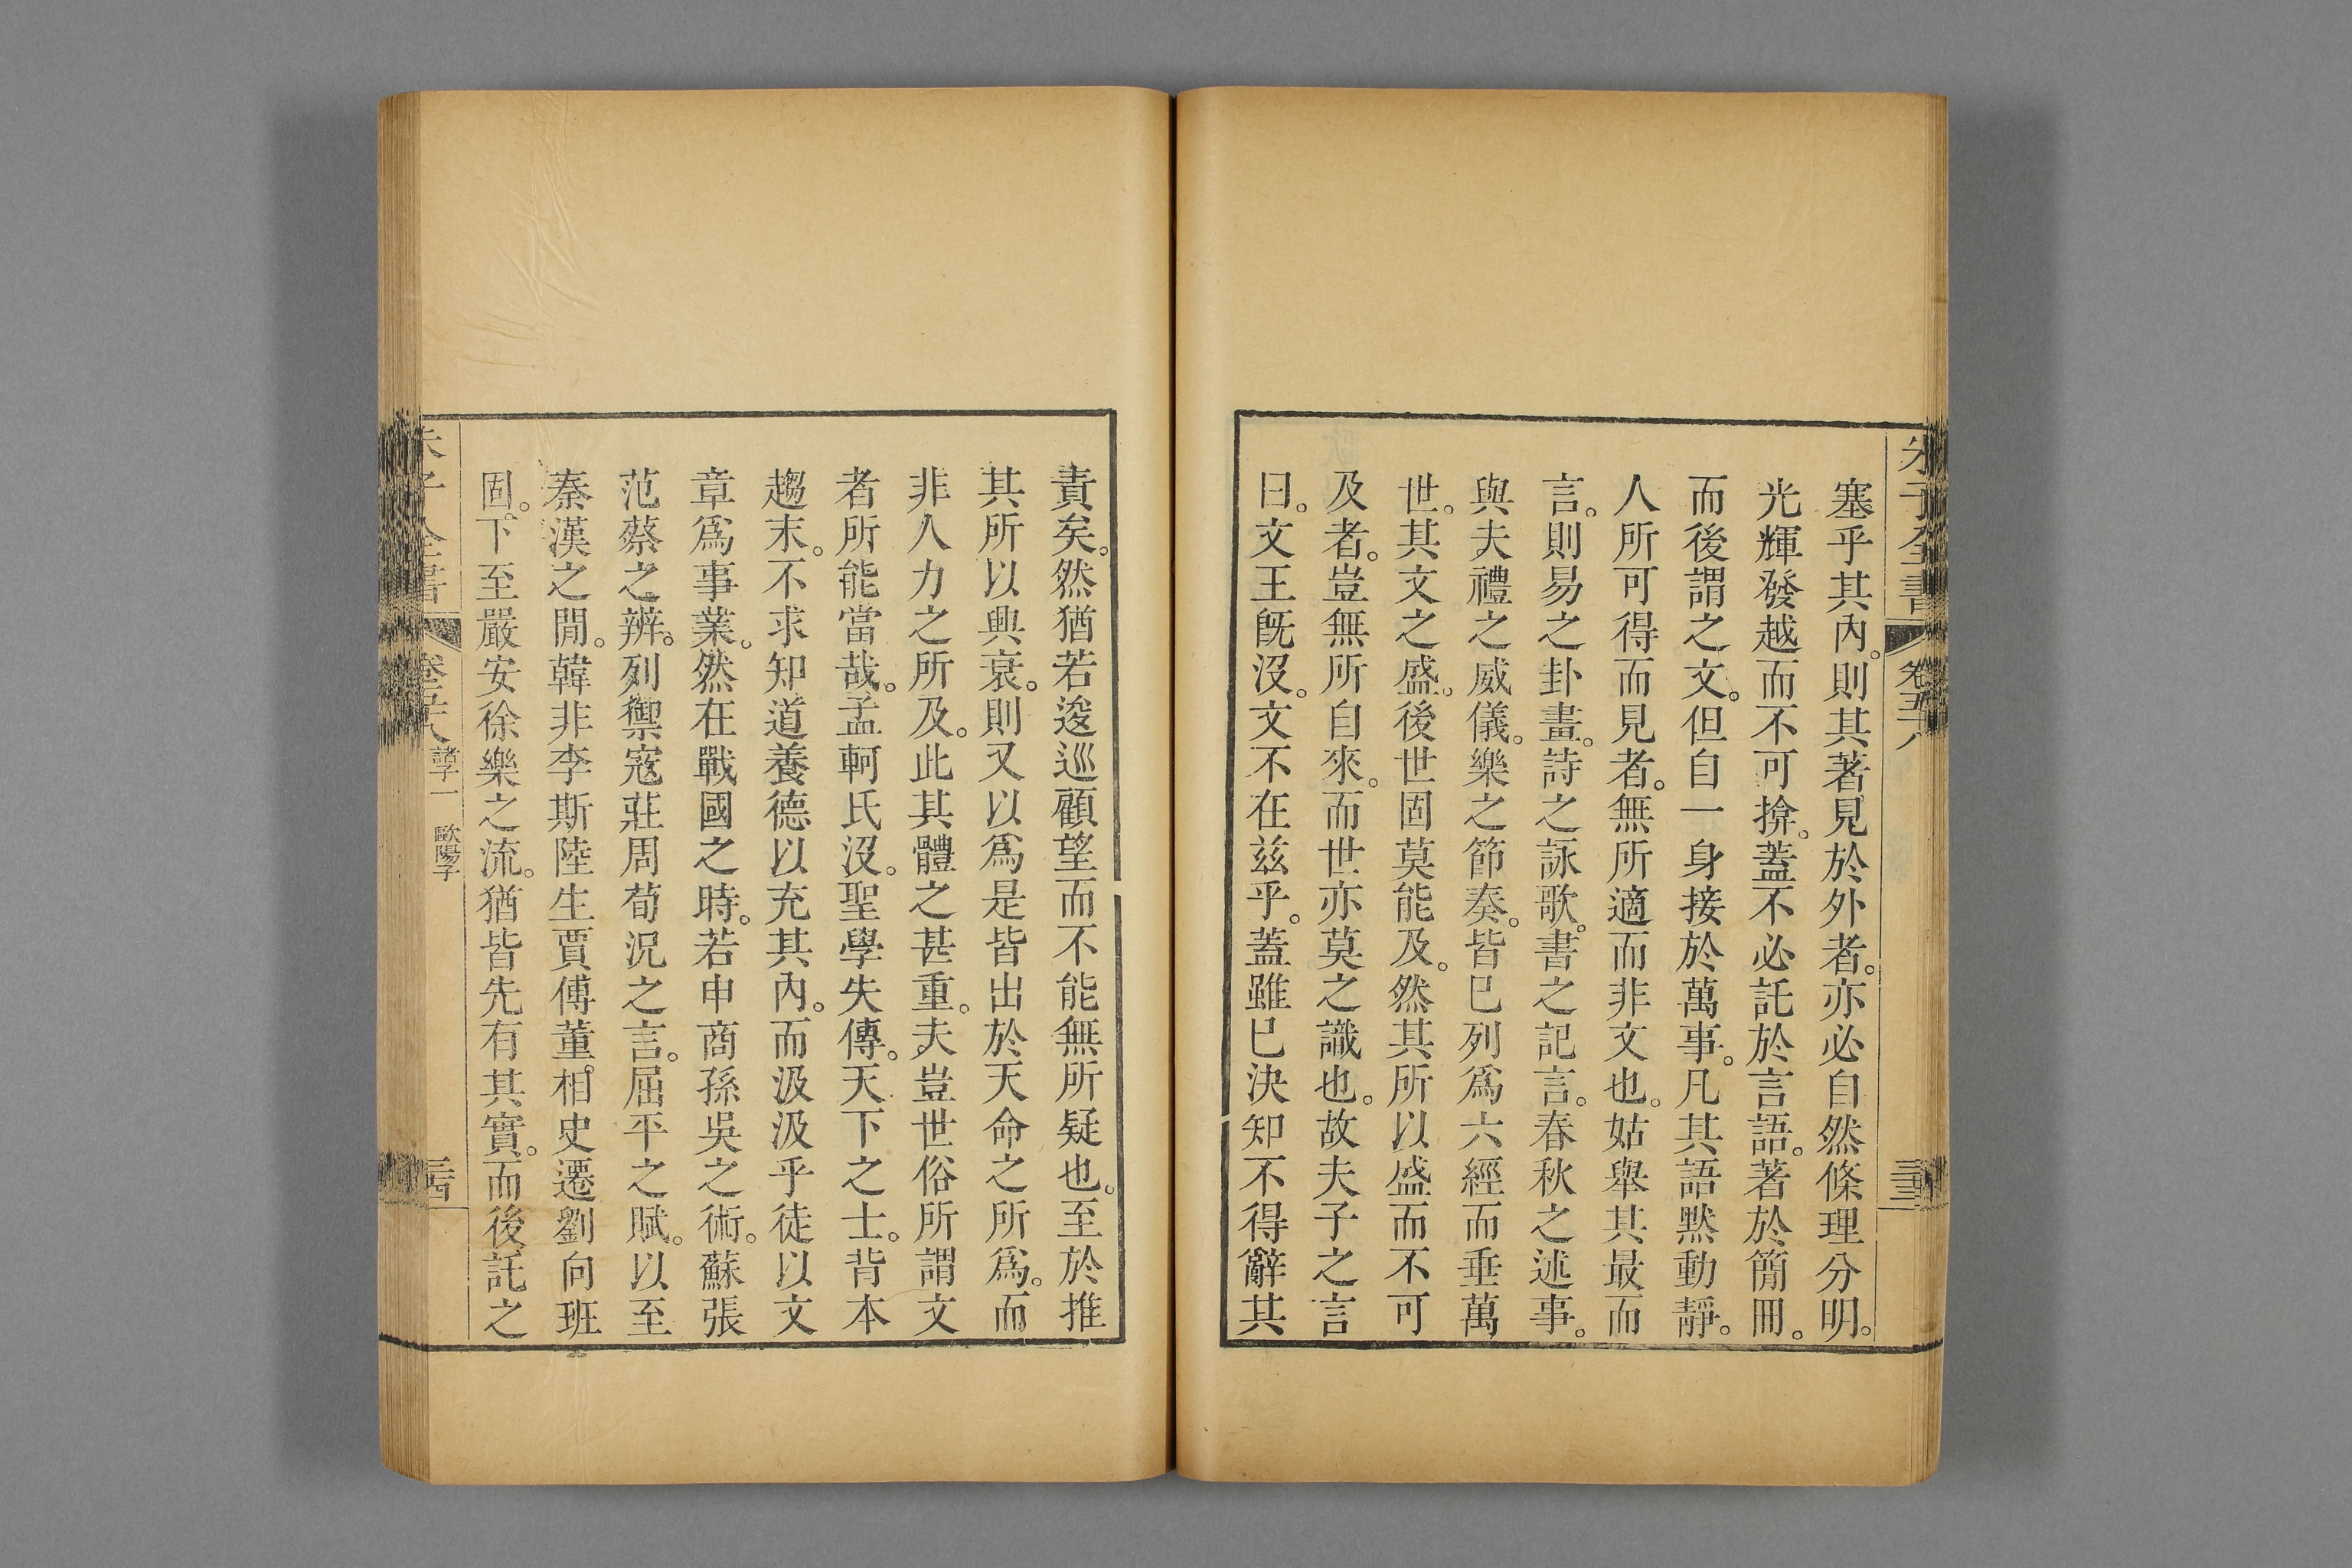 朱子全書 卷五十八
塞乎其內。則其著見於外者。亦必自然條理分明。
光輝發越而不可揜。蓋不必託於言語。著於簡冊。
而後謂之文。但自一身接於萬事。凡其語默動靜。
人所可得而見者。無所適而非文也。姑舉其最而
言。則易之卦畫。詩之詠歌。書之記言。春秋之述事。
與夫禮之威儀。樂之節奏。皆已列爲六經而垂萬
世。其文之盛。後世固莫能及。然其所以盛而不可
及者。豈無所自來。而世亦莫之識也。故夫子之言
曰。文王旣沒。文不在茲乎。蓋雖已決知不得辭其
責矣。然猶若逡巡顧望而不能無所疑也。至於推
其所以興衰。則又以爲是皆出於天命之所爲。而
非人力之所及。此其體之甚重。夫豈世俗所謂文
者所能當哉。孟軻氏沒。聖學失傳。天下之士。背本
趨末。不求知道養德以充其內。而汲汲乎徒以文
章爲事業。然在戰國之時。若申商孫吳之術。蘇張
范蔡之辨。列禦寇莊周荀況之言。屈平之賦。以至
秦漢之閒。韓非李斯陸生賈傅董相史遷劉向班
固。下至嚴安徐樂之流。猶皆先有其實。而後託之
朱子全書 卷五十八 諸子一 歐陽子